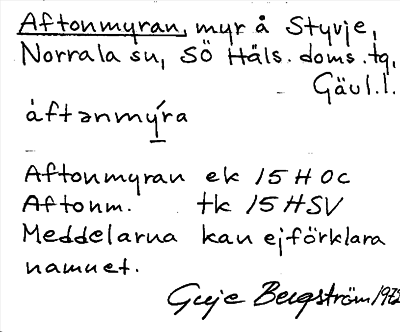 Aftonmyran, myr å Styvje,
Norrala sn, SÖ Häls. doms. tg,
Gävl. l.
áftənmỳra
Aftonmyran ek 15 H 0c
Aftonm. tk 15 H SV
Meddelarna kan ej förklara
namnet.
Greje Bergström 1972